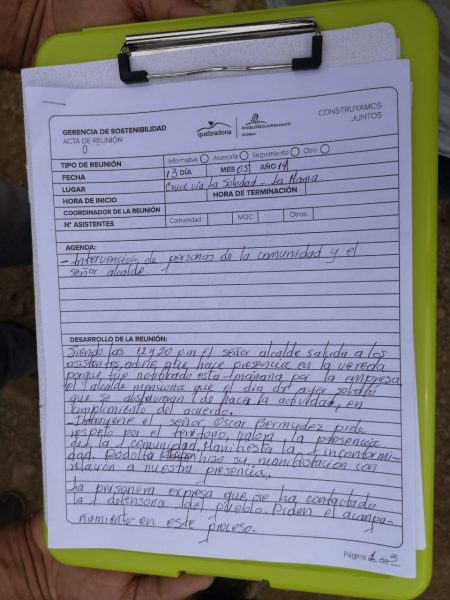 GERENCIA DE SOSTENIBILIDAD
ACTA DE REUNIÓN
0
quebradona
ANGLOGOLDASHANTI
COLOMBIA
CONSTRUYAMOS
JUNTOS
TIPO DE REUNIÓN Informativa Asesoría Seguimiento Otro
FECHA 13 DÍA MES 05 AÑO 19
LUGAR Cruce via La Soledad - La Mama
HORA DE INICIO HORA DE TERMINACIÓN
COORDINADOR DE LA REUNIÓN
N° ASISTENTES Comunidad: MQC: Otros:
AGENDA:
- Intervención de personas de la comunidad y el
señor alcalde.
DESARROLLO DE LA REUNIÓN:
Siendo las 12:20 pm el señor alcalde saluda a los
asistentes, que hace presencia en la vereda
porque fue notificado esta mañana por la empresa,
el alcalde menciona que el dia de ayer solicitó
que se abstuvieran de hacer la actividad, en
cumplimiento del acuerdo.
- Interviene el señor Oscar Bermudez pide
respeto por el territorio, valora la presencia
de la comunidad. Manifiesta la inconformi-
dad. Rodolfo hizo su manifestación con
relación a nuestra presencia.
La personera expresa que se ha contactado
la defensora del pueblo. Piden el acompa-
ñamiento en este proceso.
Página 1 de 3